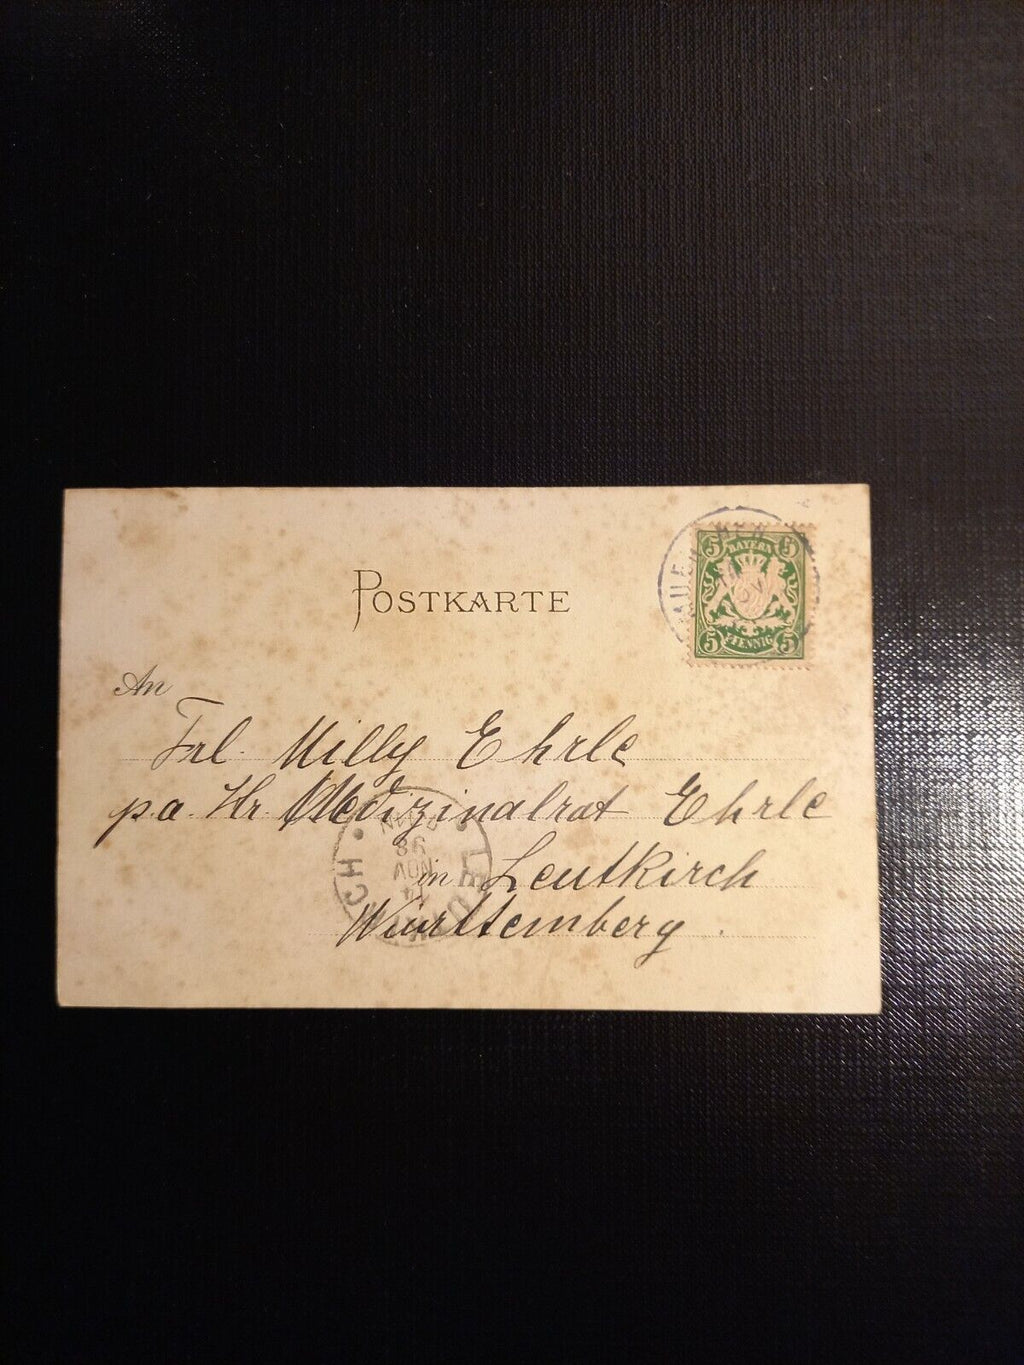 POSTKARTE
5 BAYERN 5
5 PFENNIG 5
An
Frl. Milly Ehrle
p.a. Hr. Medizinalrat Ehrle
in Leutkirch
Württemberg.
98
NOV